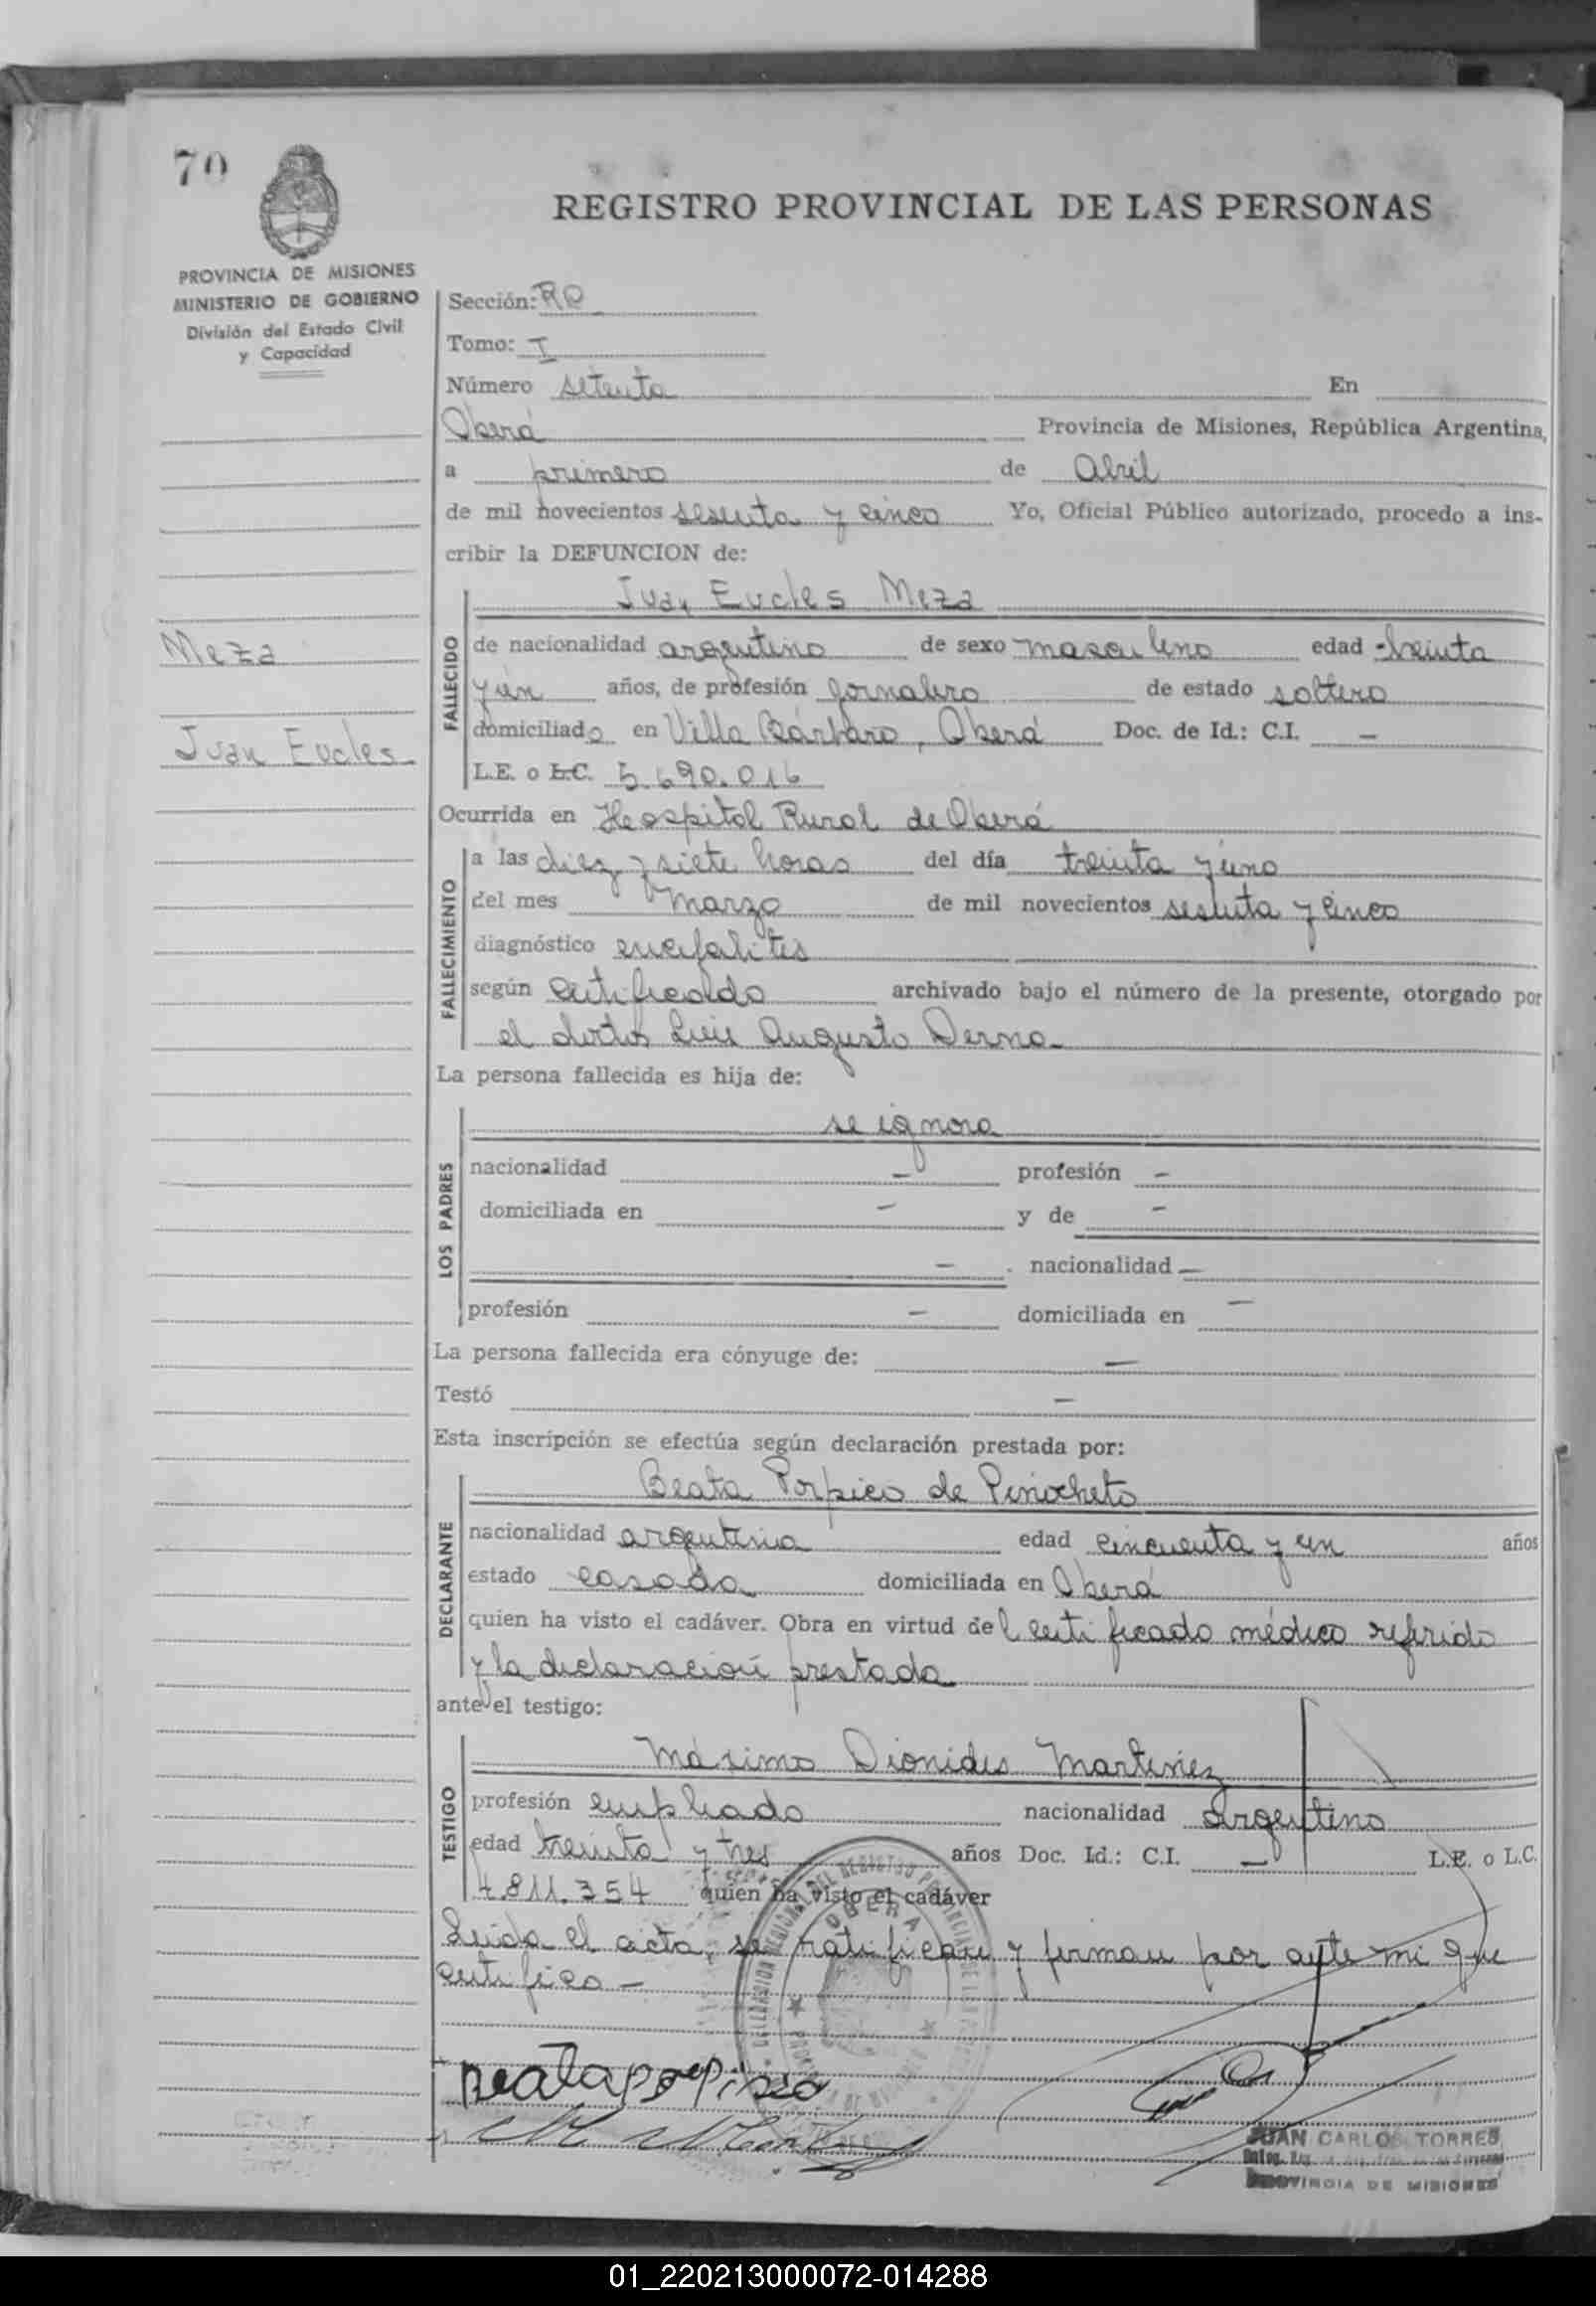 70
REGISTRO PROVINCIAL DE LAS PERSONAS
PROVINCIA DE MISIONES
MINISTERIO DE GOBIERNO
División del Estado Civil
y Capacidad
Sección: RP
Tomo: I
Número setenta En
Oberá Provincia de Misiones, República Argentina,
a primero de Abril
de mil novecientos sesenta y cinco Yo, Oficial Público autorizado, procedo a ins-
cribir la DEFUNCION de:
Juan Eucles Meza
Meza
Juan Eucles
FALLECIDO
de nacionalidad argentino de sexo masculino edad treinta
y un años, de profesión jornalero de estado soltero
domiciliado en Villa Bárbaro, Oberá Doc. de Id.: C.I. —
L.E. o L.C. 5.690.016
Ocurrida en Hospital Rural de Oberá
FALLECIMIENTO
a las diez y siete horas del día treinta y uno
del mes Marzo de mil novecientos sesenta y cinco
diagnóstico encefalitis
según certificado archivado bajo el número de la presente, otorgado por
el doctor Luis Augusto Derna
La persona fallecida es hija de:
LOS PADRES
se ignora
nacionalidad — profesión —
domiciliada en — y de —
— nacionalidad —
profesión — domiciliada en —
La persona fallecida era cónyuge de: —
Testó —
Esta inscripción se efectúa según declaración prestada por:
DECLARANTE
Beata de Pinocheto
nacionalidad argentina edad cincuenta y un años
estado casada domiciliada en Oberá
quien ha visto el cadáver. Obra en virtud del certificado médico referido
y la declaración prestada
ante el testigo:
TESTIGO
Máximo Dionides Martinez
profesión empleado nacionalidad argentino
edad treinta y tres años Doc. Id.: C.I. — L.E. o L.C.
4.811.354 quien ha visto el cadáver
Leida el acta, se ratifican y firman por ante mi que
certifico —
OBERA
JUAN CARLOS TORRES
PROVINCIA DE MISIONES
01_220213000072-014288